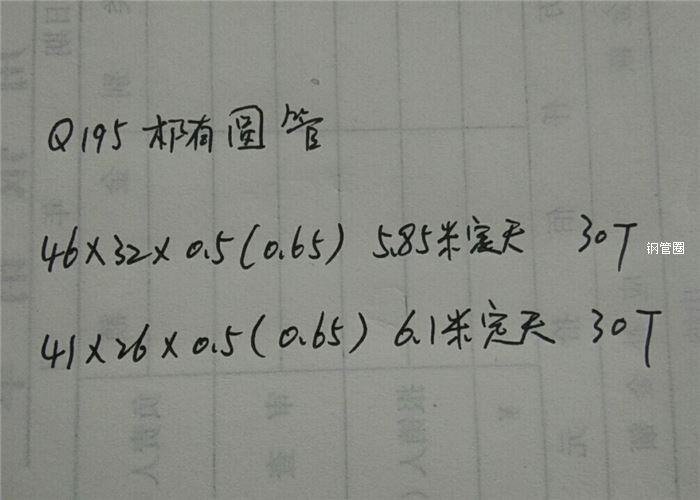 Q195 椭圆管
46×32×0.5(0.65) 5.85米定尺 30T
钢管圈
41×26×0.5(0.65) 6.1米定尺 30T